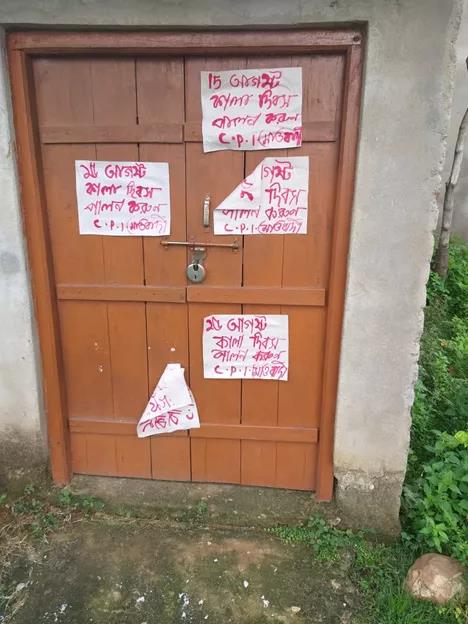 15 আগস্ট
কালা দিবস
পালন করুন
C.P.I (মাওবাদী)
১৫ আগস্ট
কালা দিবস
পালন করুন
C.P.I (মাওবাদী)
গস্ট
দিবস
পালন করুন
C.P.I (মাওবাদী)
১৫ আগস্ট
কালা দিবস
পালন করুন
C.P.I (মাওবাদী)